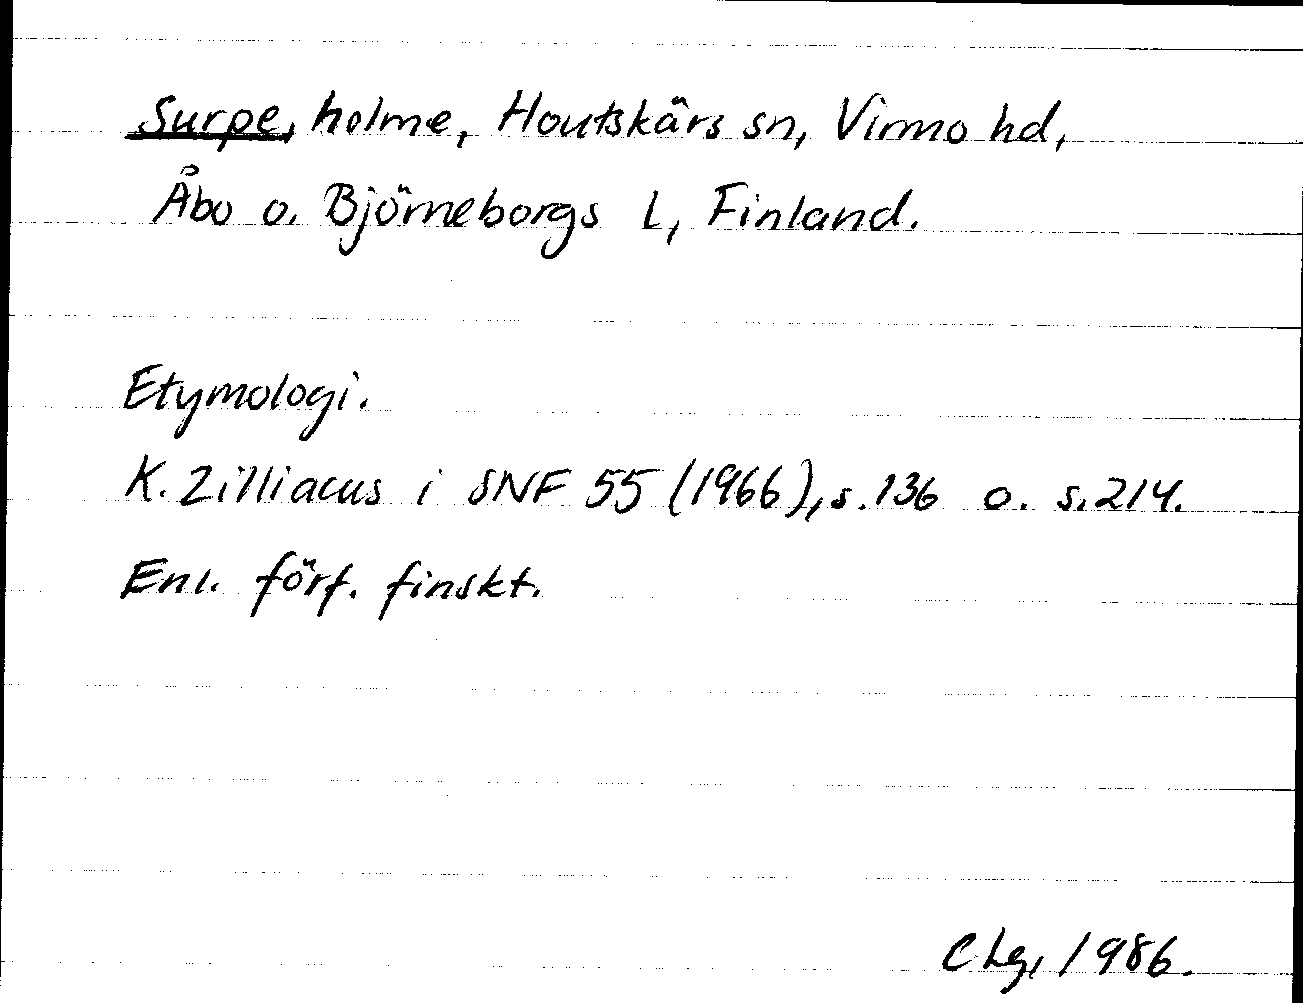 Surpe, holme, Houtskärs sn, Virmo hd,
Åbo o. Björneborgs l, Finland.
Etymologi.
K. Zilliacus i SNF 55 (1966), s. 136 o. s. 214.
Enl. förf. finskt.
CLg, 1986.